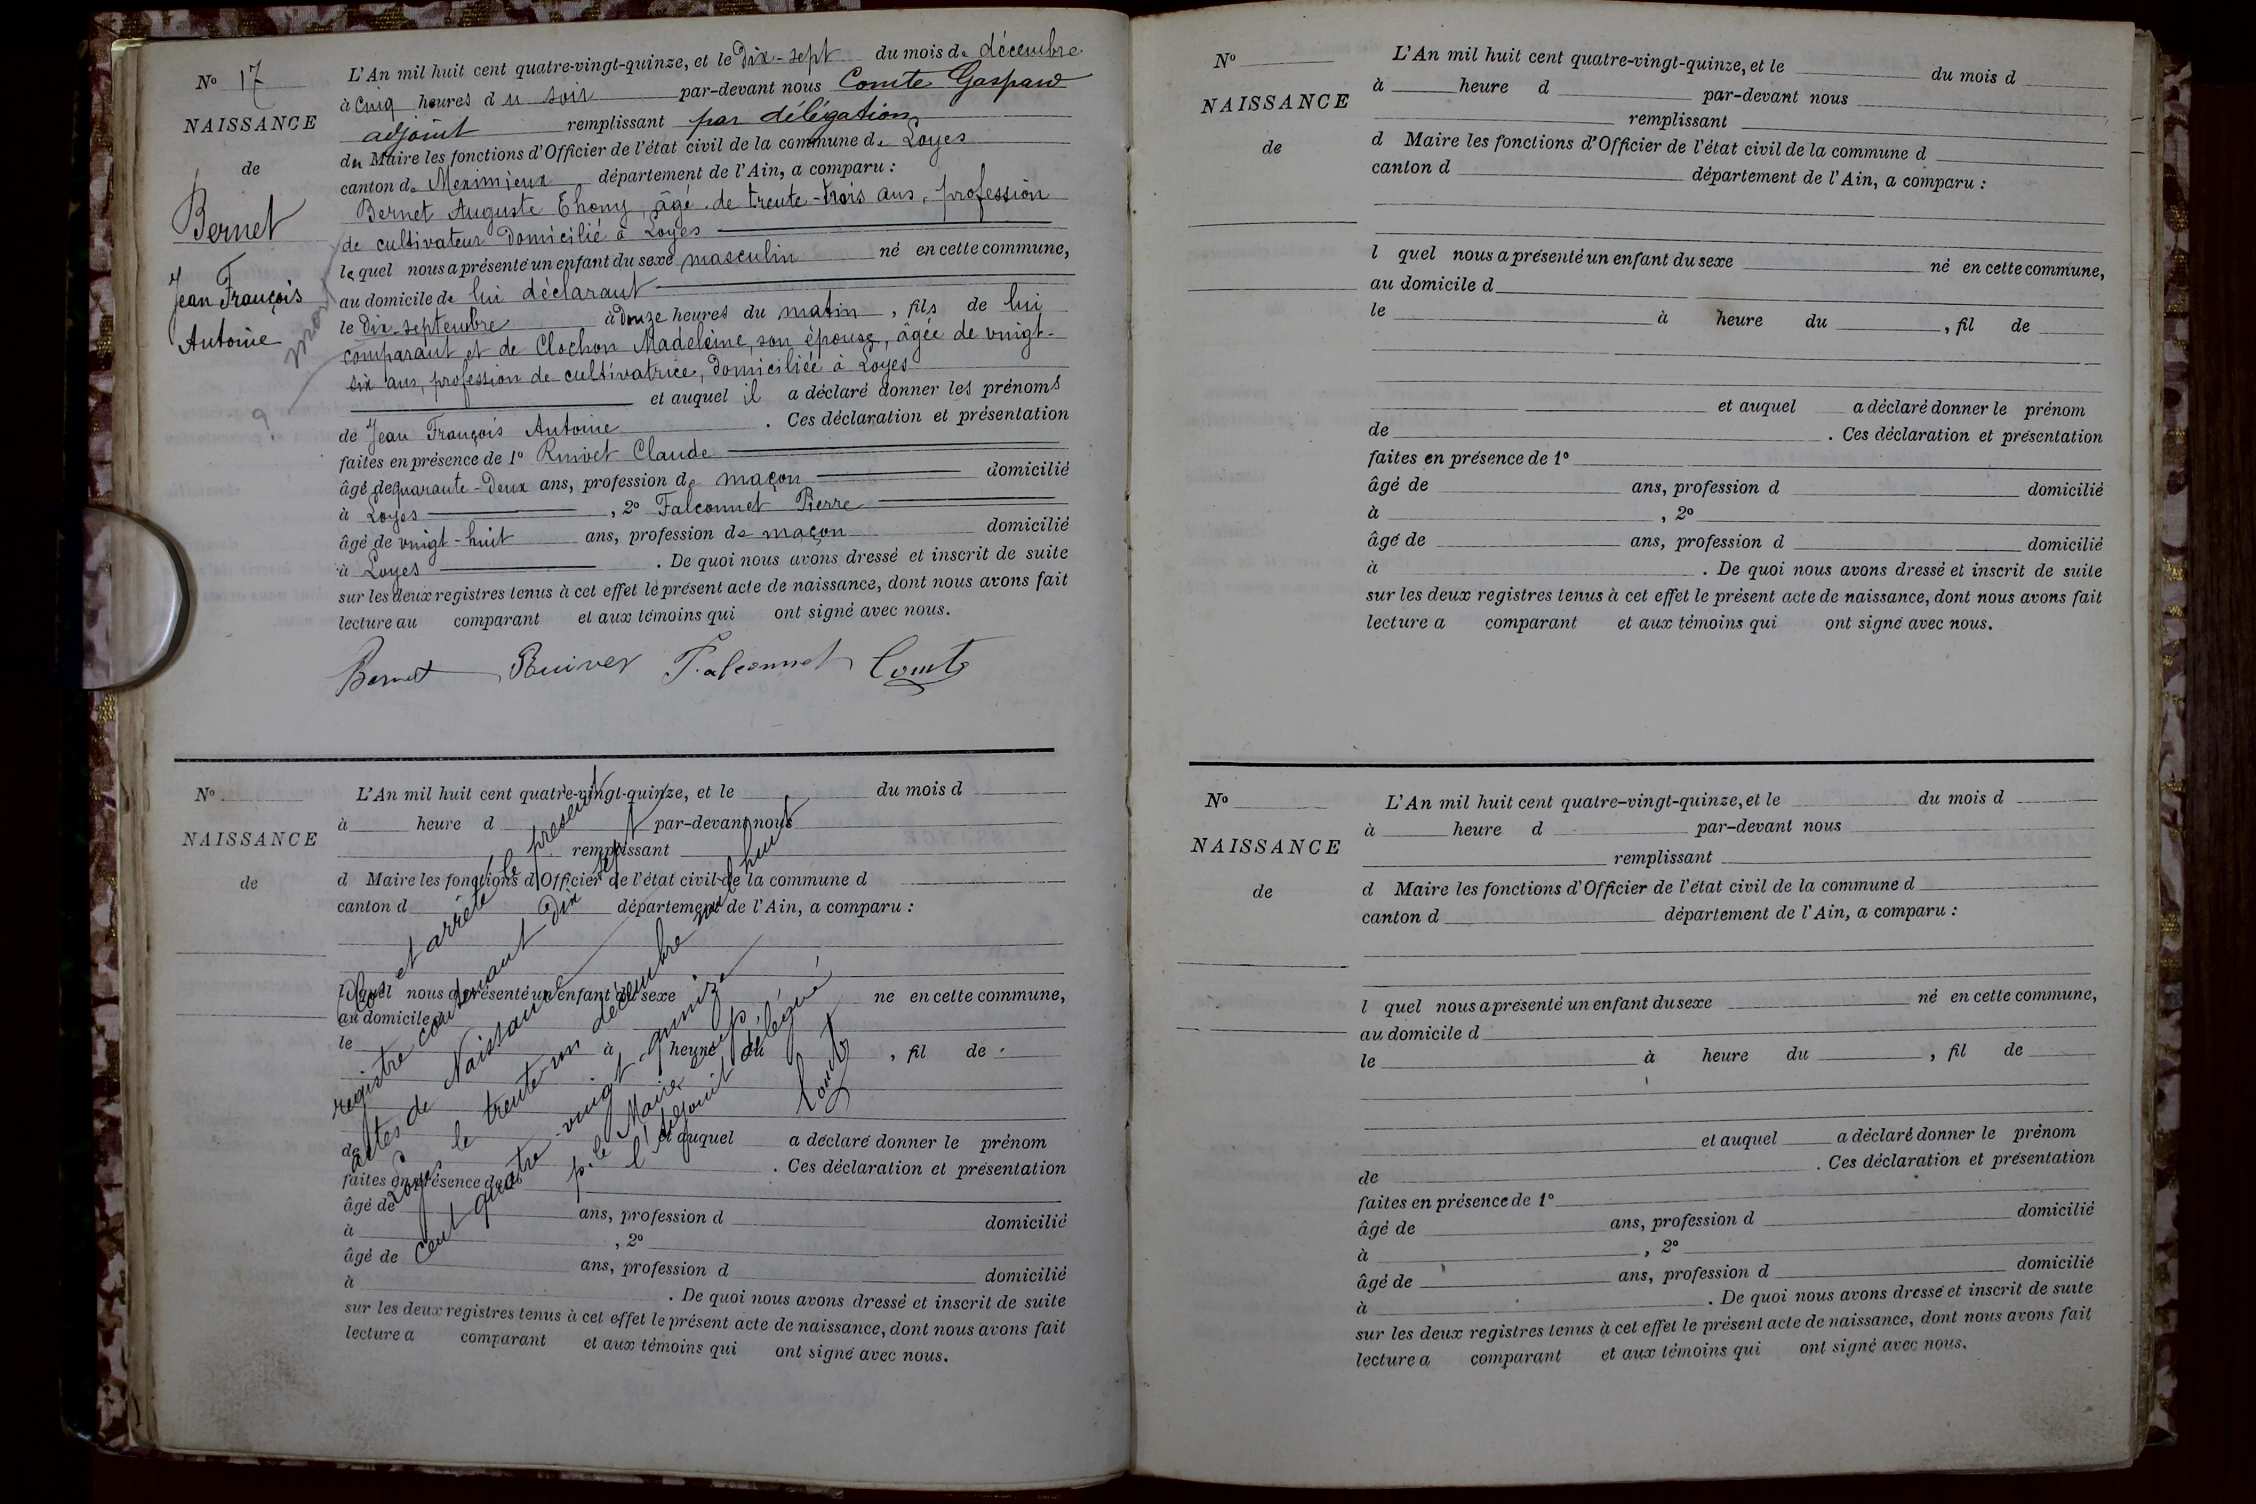 N° 17
NAISSANCE
de
Bernet
Jean François
Antoine
mort
9
L'An mil huit cent quatre-vingt-quinze, et le Dix-sept du mois de décembre
à cinq heures du soir par-devant nous Comte Gaspard
adjoint remplissant par délégation
du Maire les fonctions d'Officier de l'état civil de la commune de Loyes
canton de Meximieux département de l'Ain, a comparu :
Bernet Auguste Thony, âgé de trente-trois ans, profession
de cultivateur Domicilié à Loyes
lequel nous a présenté un enfant du sexe masculin né en cette commune,
au domicile de lui déclarant
le Dix-septembre à Douze heures du matin, fils de lui
comparant et de Clochon Madeleine, son épouse, âgée de vingt-
six ans, profession de cultivatrice, Domiciliée à Loyes
et auquel il a déclaré donner les prénoms
de Jean François Antoine . Ces déclaration et présentation
faites en présence de 1° Ruivet Claude
âgé de quarante-Deux ans, profession de maçon domicilié
à Loyes , 2° Falconnet Pierre
âgé de vingt-huit ans, profession de maçon domicilié
à Loyes . De quoi nous avons dressé et inscrit de suite
sur les deux registres tenus à cet effet le présent acte de naissance, dont nous avons fait
lecture au comparant et aux témoins qui ont signé avec nous.
Bernet Ruivet Falconnet Comte
N°
NAISSANCE
de
L'An mil huit cent quatre-vingt-quinze, et le du mois d
à heure d par-devant nous
remplissant
d Maire les fonctions d'Officier de l'état civil de la commune d
canton d département de l'Ain, a comparu :
l quel nous a présenté un enfant du sexe né en cette commune,
au domicile d
le à heure du , fil de
et auquel a déclaré donner le prénom
de . Ces déclaration et présentation
faites en présence de 1°
âgé de ans, profession d domicilié
à , 2°
âgé de ans, profession d domicilié
à . De quoi nous avons dressé et inscrit de suite
sur les deux registres tenus à cet effet le présent acte de naissance, dont nous avons fait
lecture a comparant et aux témoins qui ont signé avec nous.
Clos et arrêté le présent
registre contenant Dix sept
actes de Naissance
Loyes le trente-un décembre mil huit
cent quatre-vingt-quinze
p. le Maire emp.
l'adjoint délégué
Comte
N°
NAISSANCE
de
L'An mil huit cent quatre-vingt-quinze, et le du mois d
à heure d par-devant nous
remplissant
d Maire les fonctions d'Officier de l'état civil de la commune d
canton d département de l'Ain, a comparu :
l quel nous a présenté un enfant du sexe né en cette commune,
au domicile d
le à heure du , fil de
et auquel a déclaré donner le prénom
de . Ces déclaration et présentation
faites en présence de 1°
âgé de ans, profession d domicilié
à , 2°
âgé de ans, profession d domicilié
à . De quoi nous avons dressé et inscrit de suite
sur les deux registres tenus à cet effet le présent acte de naissance, dont nous avons fait
lecture a comparant et aux témoins qui ont signé avec nous.
N°
NAISSANCE
de
L'An mil huit cent quatre-vingt-quinze, et le du mois d
à heure d par-devant nous
remplissant
d Maire les fonctions d'Officier de l'état civil de la commune d
canton d département de l'Ain, a comparu :
l quel nous a présenté un enfant du sexe né en cette commune,
au domicile d
le à heure du , fil de
et auquel a déclaré donner le prénom
de . Ces déclaration et présentation
faites en présence de 1°
âgé de ans, profession d domicilié
à , 2°
âgé de ans, profession d domicilié
à . De quoi nous avons dressé et inscrit de suite
sur les deux registres tenus à cet effet le présent acte de naissance, dont nous avons fait
lecture a comparant et aux témoins qui ont signé avec nous.